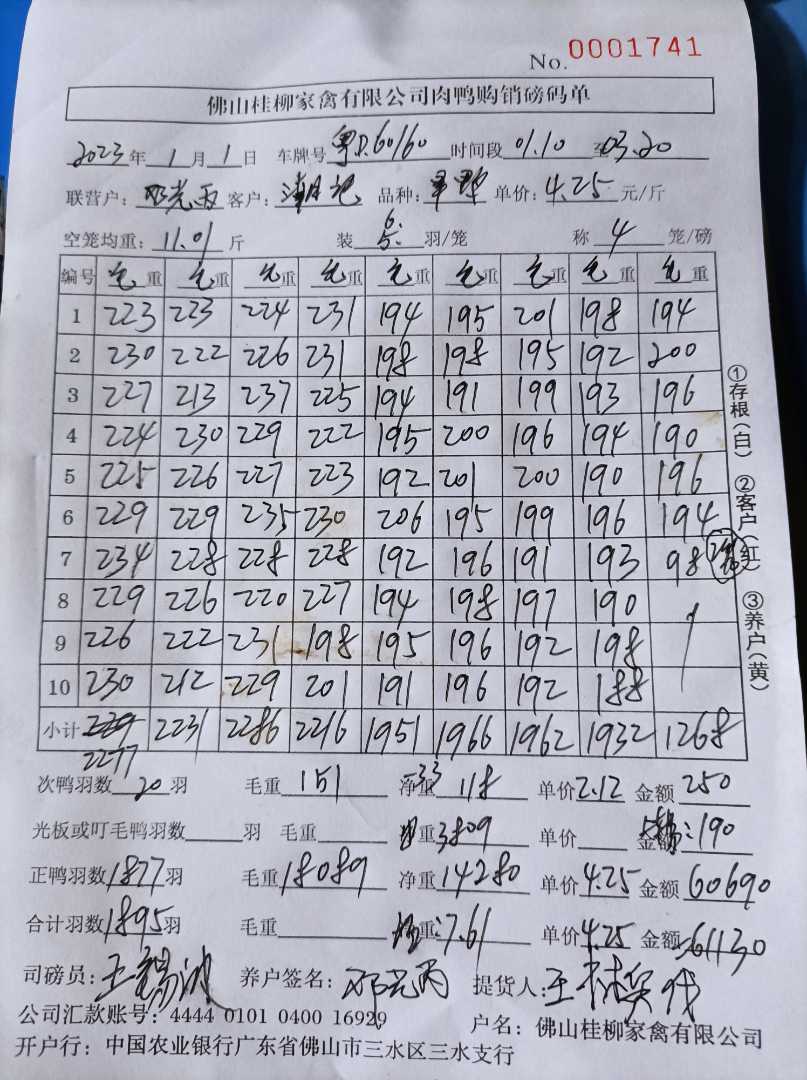 No. 0001741
佛山桂柳家禽有限公司肉鸭购销磅码单
2023年 1月 1日 车牌号 粤D.60160 时间段 01.10 至 03.20
联营户： 邓光丙 客户： 品种： 单价： 4.25 元/斤
空笼均重： 11.01 斤 装 羽/笼 称 4 笼/磅
编号 毛重 毛重 毛重 毛重 毛重 毛重 毛重 毛重 毛重
1 223 223 224 231 194 195 201 198 194
2 230 222 226 231 198 198 195 192 200
3 227 213 237 225 194 191 199 193 196
4 224 230 229 222 195 200 196 194 190
5 225 226 227 223 192 201 200 190 196
6 229 229 235 230 206 195 199 196 194
7 234 228 228 228 192 196 191 193 98
8 229 226 220 227 194 198 197 190
9 226 222 231 198 195 196 192 198
10 230 212 229 201 191 196 192 188
小计 2277 2231 2286 2216 1951 1966 1962 1932 1268
次鸭羽数 20 羽 毛重 151 净重 -33 118 单价 2.12 金额 250
光板或叮毛鸭羽数 羽 毛重 重 3809 单价 金额 : 190
正鸭羽数 1877 羽 毛重 18089 净重 14280 单价 4.25 金额 60690
合计羽数 1895 羽 毛重 重: 7.61 单价 4.25 金额 61130
司磅员： 王锡波 养户签名： 邓光丙 提货人： 王
公司汇款账号： 4444 0101 0400 16929 户名： 佛山桂柳家禽有限公司
开户行： 中国农业银行广东省佛山市三水区三水支行
①存根(白) ②客户(红) ③养户(黄)